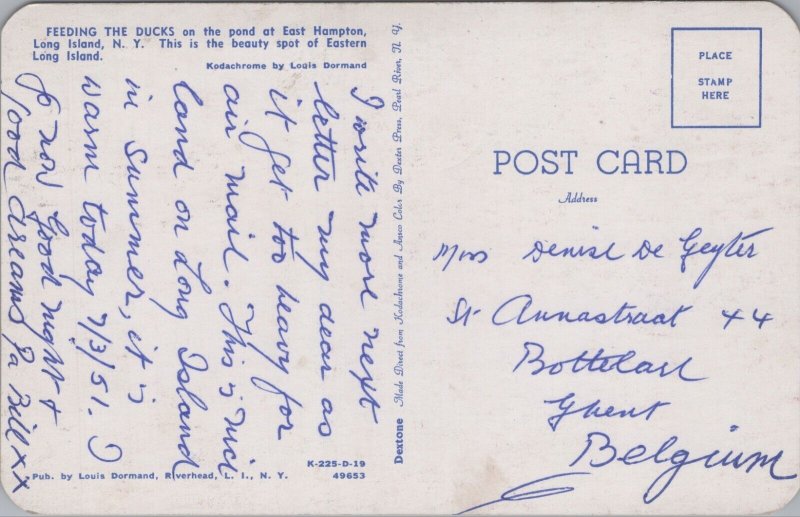 FEEDING THE DUCKS on the pond at East Hampton,
Long Island, N. Y. This is the beauty spot of Eastern
Long Island.
Kodachrome by Louis Dormand
I write more next
letter my dear as
it get too heavy for
air mail. This is nice
land on Long Island
in Summer, it is
warm today 7/3/51. 
so now Good night &
Good dreams Pa Bill xx
Pub. by Louis Dormand, Riverhead, L. I., N. Y.
K-225-D-19
49653
Dextone Made Direct from Kodachrome and Ansco Color By Dexter Press, Pearl River, N. Y.
PLACE
STAMP
HERE
POST CARD
Address
Miss Denise De Geyter
St Annastraat 44
Bottelare
Ghent
Belgium